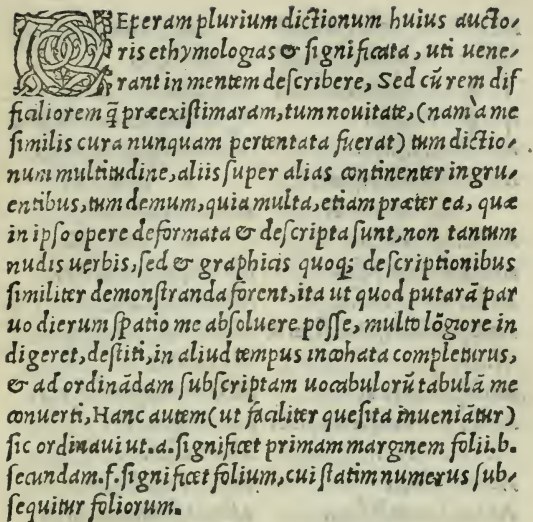 CEperam plurium dictionum huius aucto-
ris ethymologias & significata, uti uene-
rant in mentem describere, Sed cū rem dif
ficiliorem q̄ præexistimaram, tum nouitate, (nam a me
similis cura nunquam pertentata fuerat) tum dictio-
num multitudine, aliis super alias continenter ingru-
entibus, tum demum, quia multa, etiam præter ea, quæ
in ipso opere deformata & descripta sunt, non tantum
nudis uerbis, sed & graphicis quoq; descriptionibus
similiter demonstranda forent, ita ut quod putarā par
uo dierum spatio me absoluere posse, multo lōgiore in
digeret, destiti, in aliud tempus incohata completurus,
& ad ordinādam subscriptam uocabulorū tabulā me
conuerti, Hanc autem (ut faciliter quesita inueniātur)
sic ordinaui ut .a. significet primam marginem folii .b.
secundam .f. significet folium, cui statim numerus sub-
sequitur foliorum.